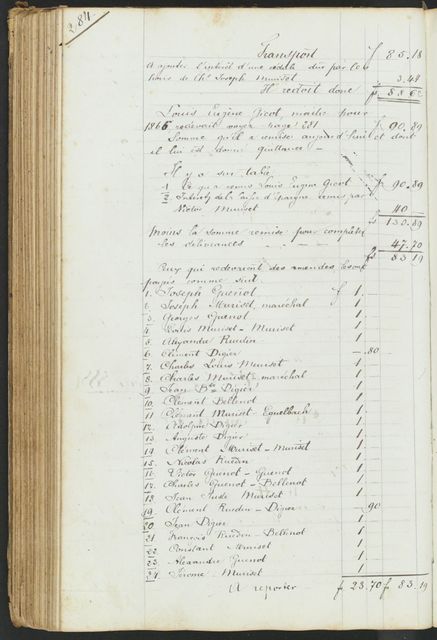 284
Transport f 85.18
A ajouter l'intérêt d'une cédule due par les
hoirs de Chs Joseph Muriset 3.48
Il redoit donc f. 88.62
Louis Eugène Gicot, maître pour
1866 redevait voyez page 281 f 90.89
Somme qu'il a remise aujourd'hui et dont
il lui est donné quittance. —
Il y a sur table
1 Ce qu'a remis Louis Eugène Gicot f 90.89
2 Intérêts de la Caisse d'épargne remis par
Victor Muriset 40 —
fs 130.89
Moins la somme remise pour compléter
les délivrances - - - 47.70
fs 83.19
Ceux qui redevraient des amendes les ont
payés comme suit.
1. Joseph Guenot f 1.
2. Joseph Muriset, maréchal 1
3. Georges Guenot 1
4. Louis Muriset-Muriset 1
5. Alexandre Ruedin 1
6. Clément Digier —.80
7. Charles Louis Muriset 1
8. Charles Muriset-maréchal 1
9. Jean Bte Digier 1
10. Clément Bellenot 1
11. Clément Muriset-Equelbach 1
12. Adolphe Digier 1
13. Auguste Digier 1
14 Clément Muriset-Muriset 1
15. Nicolas Ruedin 1
16. Victor Guenot-Guenot 1
17. Charles Guenot-Bellenot 1
18 Jean Jude Muriset 1
19. Clément Ruedin-Digier —.90
20 Jean Digier 1
21 François Ruedin-Bellenot 1
22 Constant Muriset 1
23 Alexandre Guenot 1
24. Jérome Muriset 1
A reporter f 23.70 f 83.19